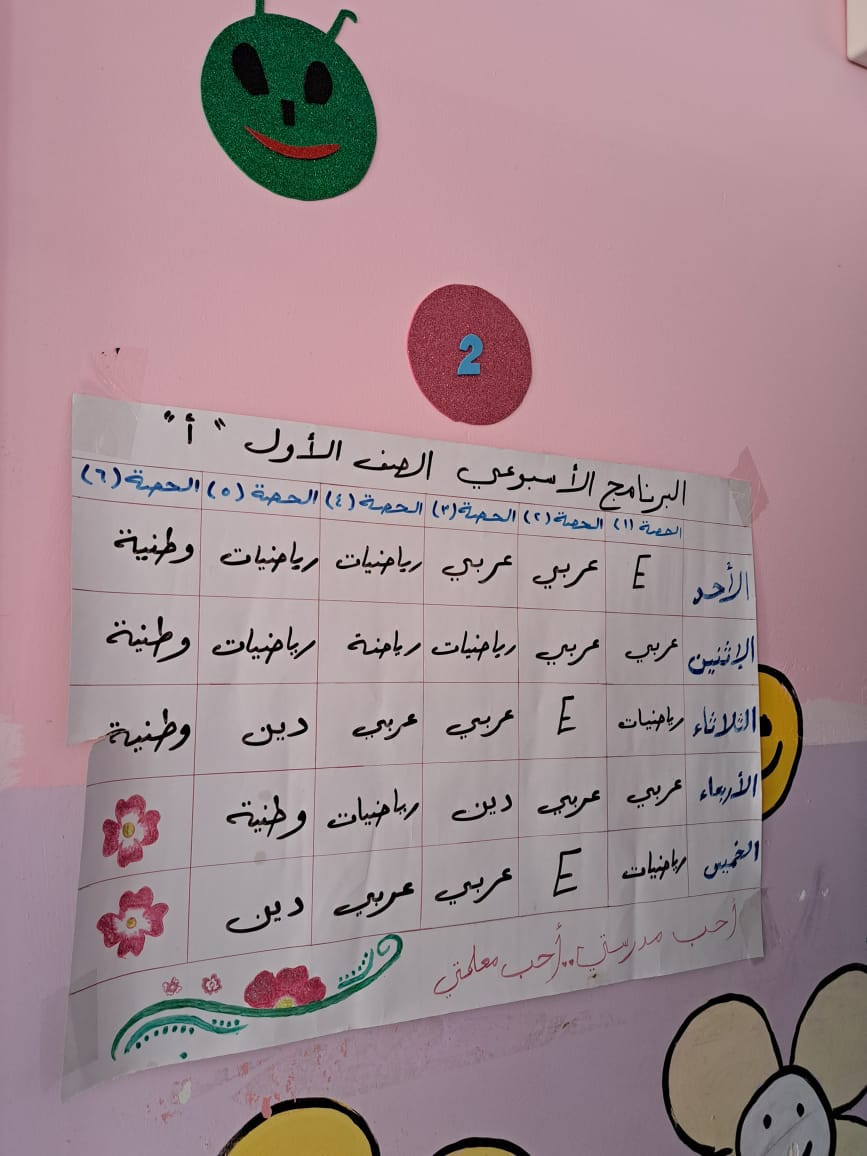 2
البرنامج الأسبوعي الصف الأول "أ"
الحصة (١) الحصة (٢) الحصة (٣) الحصة (٤) الحصة (٥) الحصة (٦)
الأحد E عربي عربي رياضيات رياضيات وطنية
الإثنين عربي عربي رياضيات رياضة رياضيات وطنية
الثلاثاء رياضيات E عربي عربي دين وطنية
الأربعاء عربي عربي دين رياضيات وطنية
الخميس رياضيات E عربي عربي دين
أحب مدرستي..أحب معلمتي